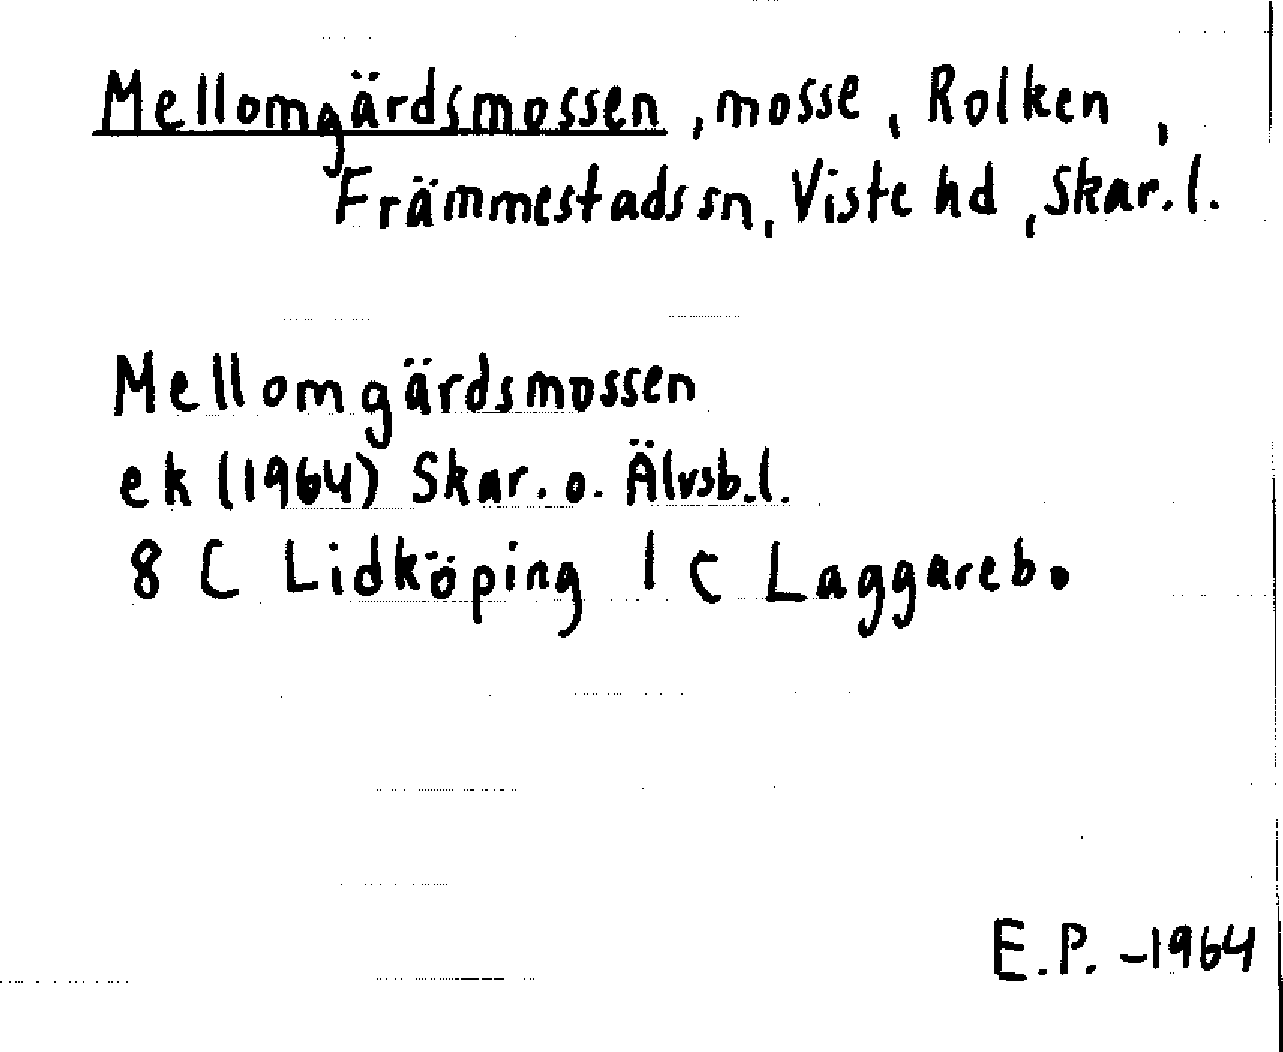 Mellomgärdsmossen, mosse, Rolken,
Främmestads sn, Viste hd, Skar. l.
Mellomgärdsmossen
ek (1964) Skar. o. Älvsb. l.
8 C Lidköping 1 c Laggareb.
E.P. -1964